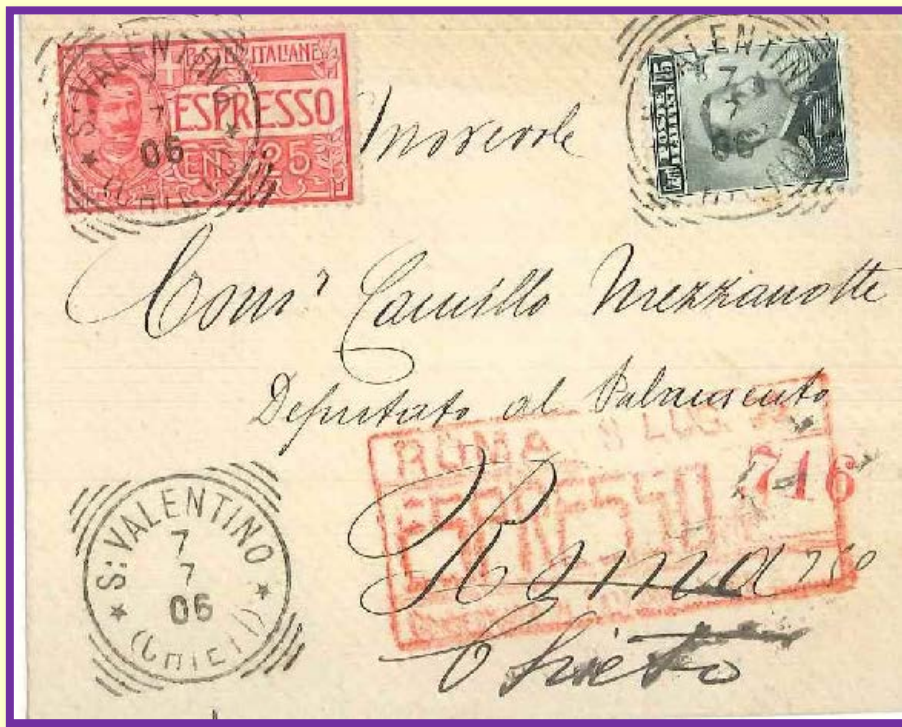 POSTE ITALIANE
ESPRESSO
CENT. 25
S. VALENTINO
7
7
06
(CHIETI)
POSTE ITALIANE
15
S. VALENTINO
7
Onorevole
Comr Camillo Mezzanotte
Deputato al Palamento
ROMA 8 LUG.
ESPRESSO
716
Roma
Chieti
S. VALENTINO
7
7
06
(CHIETI)